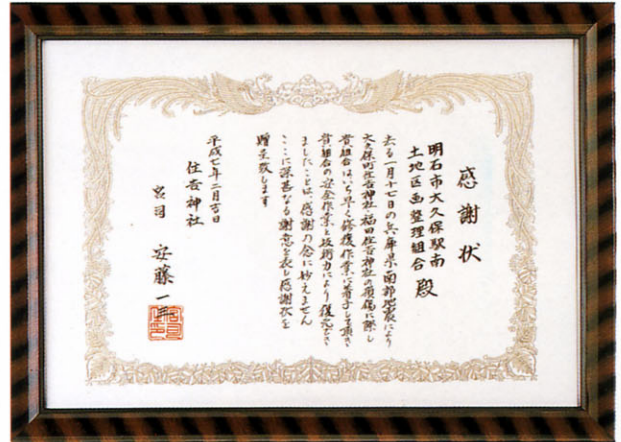 感謝状
明石市大久保駅南
土地区画整理組合 殿
去る一月十七日の兵庫県南部地震により
大久保町住吉神社福田住吉神社の損傷に際し
貴組合はいち早く修復作業に着手し頂き
貴組合の安全作業と技術力により復元でき
ましたことは感謝の念に妙えません
ここに深甚なる謝意を表し感謝状を
贈呈致します
平成七年二月吉日
住吉神社
宮司 安藤 一